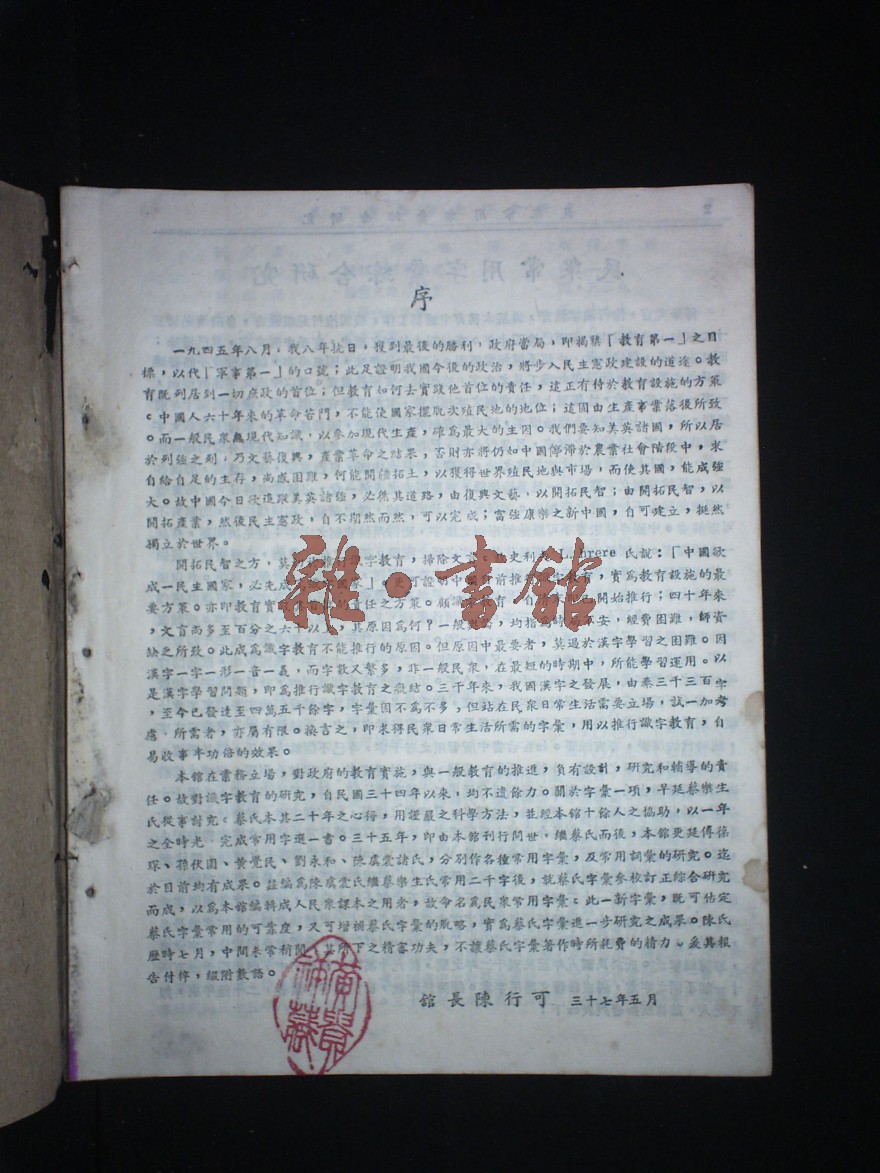 序
一九四五年八月，我八年抗日，獲到最後的勝利，政府當局，即揭櫫「教育第一」之目
標，以代「軍事第一」的口號；此足證明我國今後的政治，將步入民主憲政建設的道途。教
育既列居到一切庶政的首位；但教育如何去實踐他首位的責任，這正有待於教育設施的方策
。中國人六十年來的革命苦鬥，不能使國家擺脫次殖民地的地位；這固由生產事業落後所致
。而一般民眾無現代知識，以參加現代生產，確為最大的主因。我們要知美英諸國，所以居
於列強之列，乃文藝復興，產業革命之結果，否則亦將仍如中國停滯於農業社會階段中，求
自給自足的生存，尚感困難，何能開疆拓土，以獲得世界殖民地與市場，而使其國，能成強
大。故中國今日欲追蹤美英諸強，必循其道路，由復興文藝，以開拓民智；由開拓民智，以
開拓產業，然後民主憲政，自不期然而然，可以完成；富強康樂之新中國，自可建立，挺然
獨立於世界。
開拓民智之方，莫 字教育，掃除文 史利 氏說：「中國欲
成一民主國家，必先成 」。更可證明中國 前推 教育，實為教育設施的最
要方策。亦即教育實踐 責任之方策。顧識 育，自 開始推行；四十年來
，文盲尚多至百分之六十以 ，其原因為何？一般 ，均指 時局不安，經費困難，師資
缺乏所致。此成為識字教育不能推行的原因。但原因中最要者，莫過於漢字學習之困難。因
漢字一字一形一音一義，而字數又繁多，非一般民眾，在最短的時期中，所能學習運用。以
是漢字學習問題，即為推行識字教育之癥結。三千年來，我國漢字之發展，由秦三千三百字
，至今已發達至四萬五千餘字，字彙固不為不多，但站在民眾日常生活需要立場，試一加考
慮，所需者，亦屬有限。換言之，即求得民眾日常生活所需的字彙，用以推行識字教育，自
易收事半功倍的效果。
本館在業務立場，對政府的教育實施，與一般教育的推進，負有設計，研究和輔導的責
任。故對識字教育的研究，自民國三十四年以來，均不遺餘力。關於字彙一項，早延蔡樂生
氏從事討究。蔡氏本其二十年之心得，用證嚴之科學方法，並經本館十餘人之協助，以一年
之全時光，完成常用字選一書。三十五年，即由本館刊行問世，繼蔡氏而後，本館更延傅葆
琛、孫伏園、黃覺民、劉永和、陳虞裳諸氏，分別作各種常用字彙，及常用詞彙的研究。迄
於目前均有成果。茲編為陳虞裳氏繼蔡樂生氏常用二千字後，就蔡氏字彙參校訂正綜合研究
而成，以為本館編輯成人民眾課本之用者，故命名為民眾常用字彙。此一新字彙，既可估定
蔡氏字彙常用的可靠度，又可增補蔡氏字彙的脫略，實為蔡氏字彙進一步研究之成果。陳氏
歷時七月，中間未常稍間，其所下之精審功夫，不讓蔡氏字彙著作時所耗費的精力。爰其報
告付梓，綴附數語。
館長陳行可 三十七年五月
雜·書館